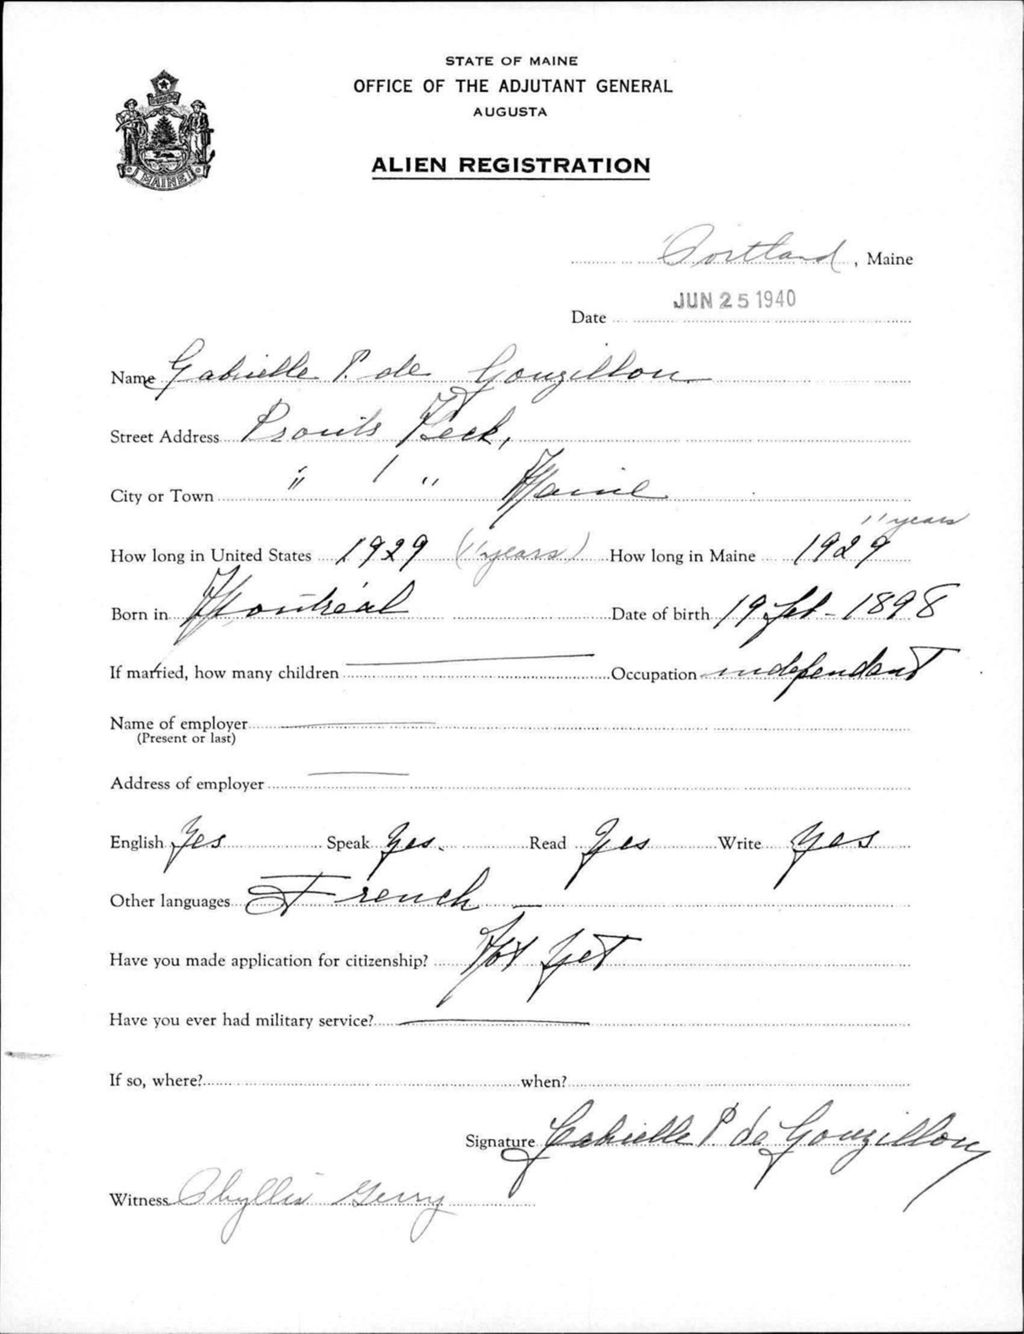 STATE OF MAINE
OFFICE OF THE ADJUTANT GENERAL
AUGUSTA
ALIEN REGISTRATION
MAINE
Portland, Maine
Date JUN 25 1940
Name Gabrielle P. de Gouzillon
Street Address Prouts Neck,
City or Town " / " Maine
11 years
How long in United States 1929 (11 years) How long in Maine 1929
Born in Montréal Date of birth 19 feb - 1898
If married, how many children — Occupation independant
Name of employer —
(Present or last)
Address of employer —
English Yes Speak Yes. Read Yes Write Yes
Other languages French —
Have you made application for citizenship? Not yet
Have you ever had military service? —
If so, where? when?
Signature Gabrielle P de Gouzillon
Witness Phyllis Gerry